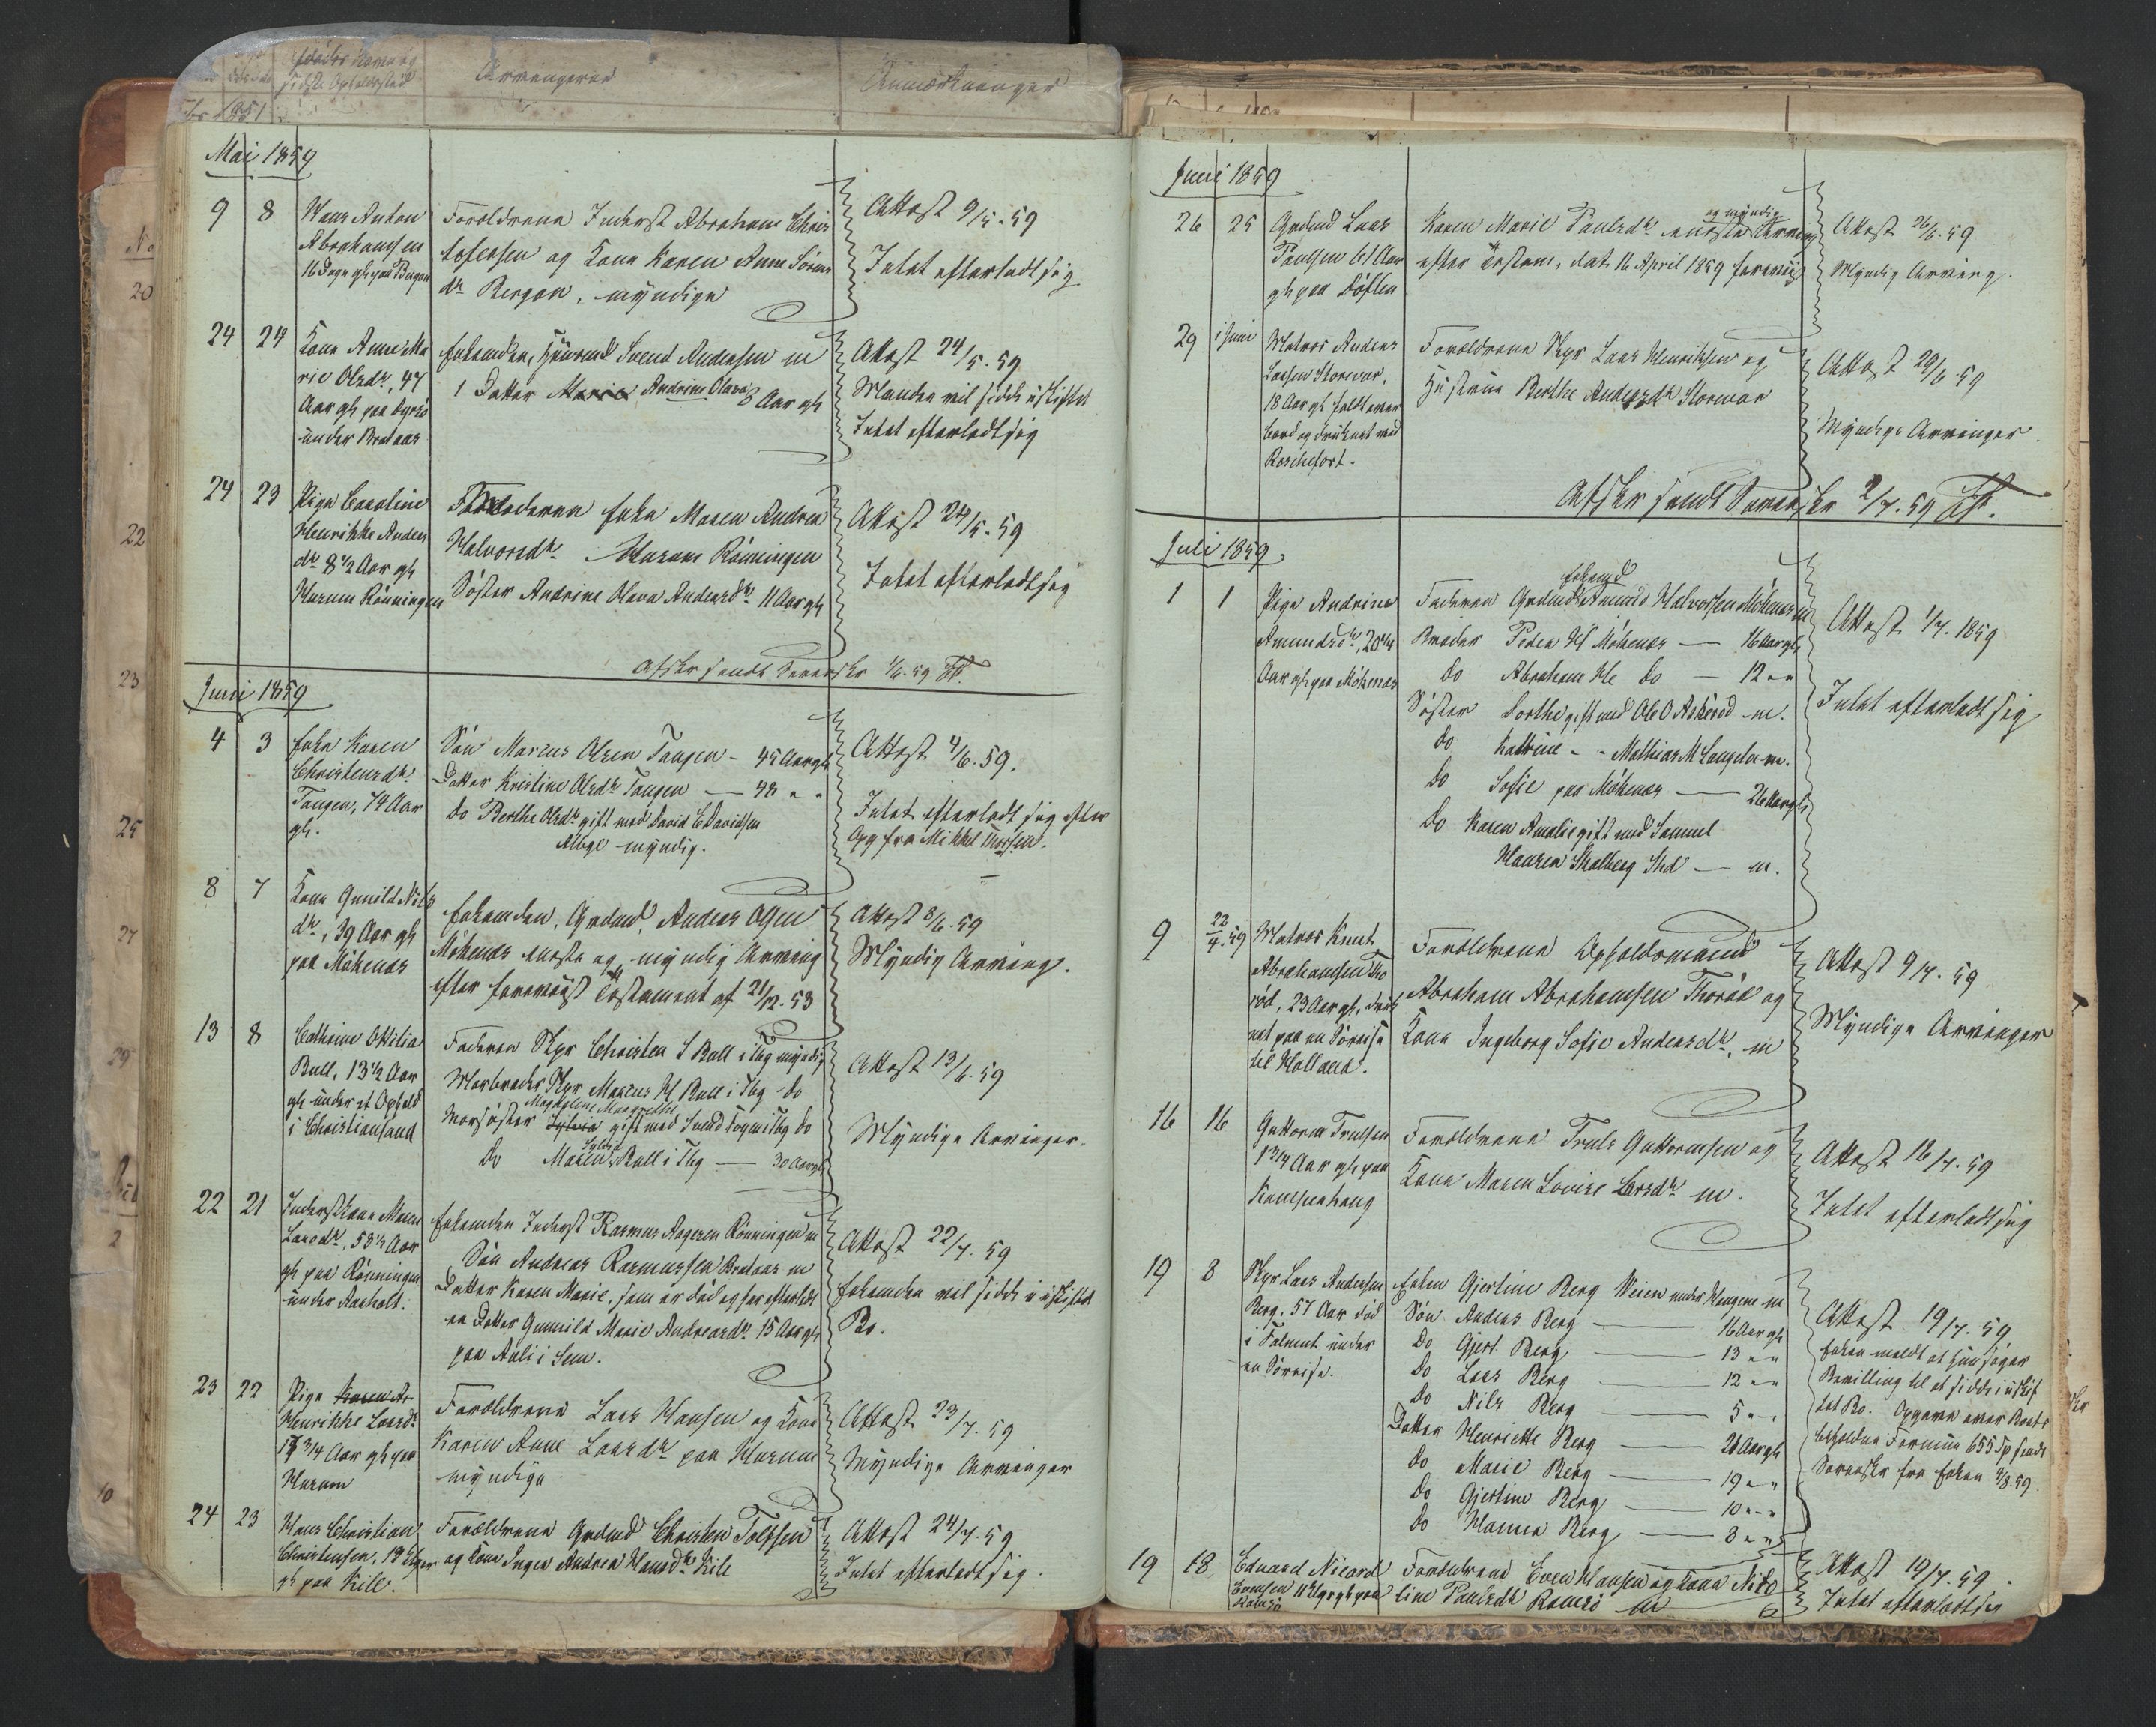 Arvingerne
Anmærkninger
1851
Mai 1859
9 8 Hans Anton
Abrahamsen
16 Dage gl paa Bergan
Forældrene Inderst Abraham Chris
tofersen og Kone Karen Anne Sørens
dr Bergan, myndige
Attest 9/5-59
Intet efterladt sig
24 24 Kone Anne Ma
rie Olsdr, 47
Aar gl paa
under Brataas
Enkemden, Huusmd Svend Andersen m
1 Datter Andrine Olava 8 Aar gl
Attest 24/5.59
Manden vil sidde i uskiftet
Intet efterladt sig
24 23 Pige Caroline
Henrikke Anders
dr 8 1/2 Aar gl
Husum Rönningen
Enke Maren Andrea
Halvorsdr Husum Rönningen
Söster Andrine Olava Andersdr 11 Aar gl
Attest 24/5.59
Intet efterladt sig
Afskr sendt Sorenskr 1/6.59
Juni 1859
4 3 Enke Karen
Christensdr
Tangen, 74 Aar
gl.
Sön Marcus Olsen Tangen - 45 Aar gl
Datter Kristine Olsdr Tangen — 48 " "
Do Berthe Olsdr gift med David E Davidsen
myndig.
Attest 4/6.59.
Intet efterladt sig efter
Opg fra Mikkel Thorsen.
8 7 Kone Gunild Nils
dr, 39 Aar gl
paa Mökenæs
Enkemden, Grdmd, Andreas Olsen
Mökenæs eneste og myndig Arving
efter foreviist Testament af 21/12.53
Attest 8/6.59
Myndig Arving.
13 8 Cathrine Ottilia
Bull, 13 1/2 Aar
gl under et Ophold
i Christiansand
Faderen Skpr Christen S Bull i Tbg myndig
Morbroder Skpr Marcus H Bull i Tbg - Do
Magdalene Margrethe
Morsöster gift med Svend Foyn i Tbg Do
Do Maren Bull i Tbg — 30 Aar gl
Attest 13/6.59
Myndige Arvinger.
22 21 Inderst Kone Maren
Larsdr, 58 1/2 Aar
gl paa Rönningen
under Aasholt.
Enkemden Inderst Rasmus Aagesen Rönningen m
Sön Andreas Rasmussen Brataas m
Datter Karen Marie, som er död og har efterladt
en Datter Gunnild Marie Andreasdr 15 Aar gl
paa Auli i Sem.
Attest 22/7.59
Enkemden vil sidde i uskiftet
Bo.
23 22 Pige
Henrikke Larsdr
17 3/4 Aar gl paa
Husum
Forældrene Lars Hansen og Kone
Karen Anne Larsdr paa Husum
myndige
Attest 23/7.59
Myndige Arvinger
24 23 Hans Christian
Christensen, 19 Uger
gl paa Kile.
Forældrene Grdmd Christen Tolfsen
og Kone Inger Andrea Hansdr Kile
Attest 24/7.59
Intet efterladt sig.
Juni 1859
26 25 Grdmd Lars
Paulsen 61 Aar
gl paa
og myndig
Karen Marie Paulsdr eneste Arving
efter Testam, dat 16 April 1859 foreviist
Attest 26/6.59
Myndig Arving.
29 i Juni Matros Anders
Larsen Storevar,
18 Aar gl faldt over
bord og druknet ved
Roschefort.
Forældrene Skpr Lars Henriksen og
Hustrue Berthe Andersdr Storevar
Attest 29/6.59
Myndige Arvinger
Afskr sendt Sorenskr 2/7.59
Juli 1859
1 1 Pige Andrine
Amundsdr, 20 3/4
Aar gl paa Mökenæs
Enkemd
Faderen Grdmd Amund Halvorsen Mökenæs m
Broder Peder H Mökenæs — 16 Aar gl
Do Abraham Do — 12 " "
Söster Dorthe gift med Ole O Askeröd - m.
Do Kathrine - - Mathias M Langelar m.
Do Sofie paa Mökenæs — 26 Aar gl
Do Karen Amalie gift med Samuel
Hansen Skalberg Sd — m.
Attest 1/7.1859
Intet efterladt sig
9 22/4.59 Matros Knut
Abrahamsen Tho
röd, 23 Aar gl, druk
net paa en Söreise
til Holland.
Forældrene Opholdsmand
Abraham Abrahamsen Thoröd og
Kone Ingeborg Sofie Andersdr, m
Attest 9/7.59
Myndige Arvinger
16 16 Guttorm Trulsen
1 3/4 Aar gl paa
Kampenhaug
Forældrene Truls Guttormsen og
Kone Maren Lovise Larsdr m.
Attest 16/7.59
Intet efterladt sig
19 8 Skpr Lars Andersen
Berg, 57 Aar död
i Falmut under
en Söreise.
Enken Gjertine Berg Veien under Haugene m
Sön Anders Berg — 16 Aar gl
Do Gjert. Berg — 13 " "
Do Lars Berg — 12 " "
Do Nils Berg — 5 " "
Datter Henriette Berg — 21 Aar gl
Do Marie Berg — 19 " "
Do Gjertine Berg — 10 " "
Do Hanna Berg — 8 " "
Attest 19/7.59
Enken meldt at hun söger
Bevilling til at sidde i uskif
tet Bo. Opgave over Boets
beholdne Formue 655 Sp sendt
Sorenskr fra Enken 4/8.59.
19 18 Eduard Nicard
Evensen 11 Uger gl paa
Ramsö
Forældrene Even Hansen og Kone Nico
line Paulsdr Ramsö m
Attest 19/7.59.
Intet efterladt sig